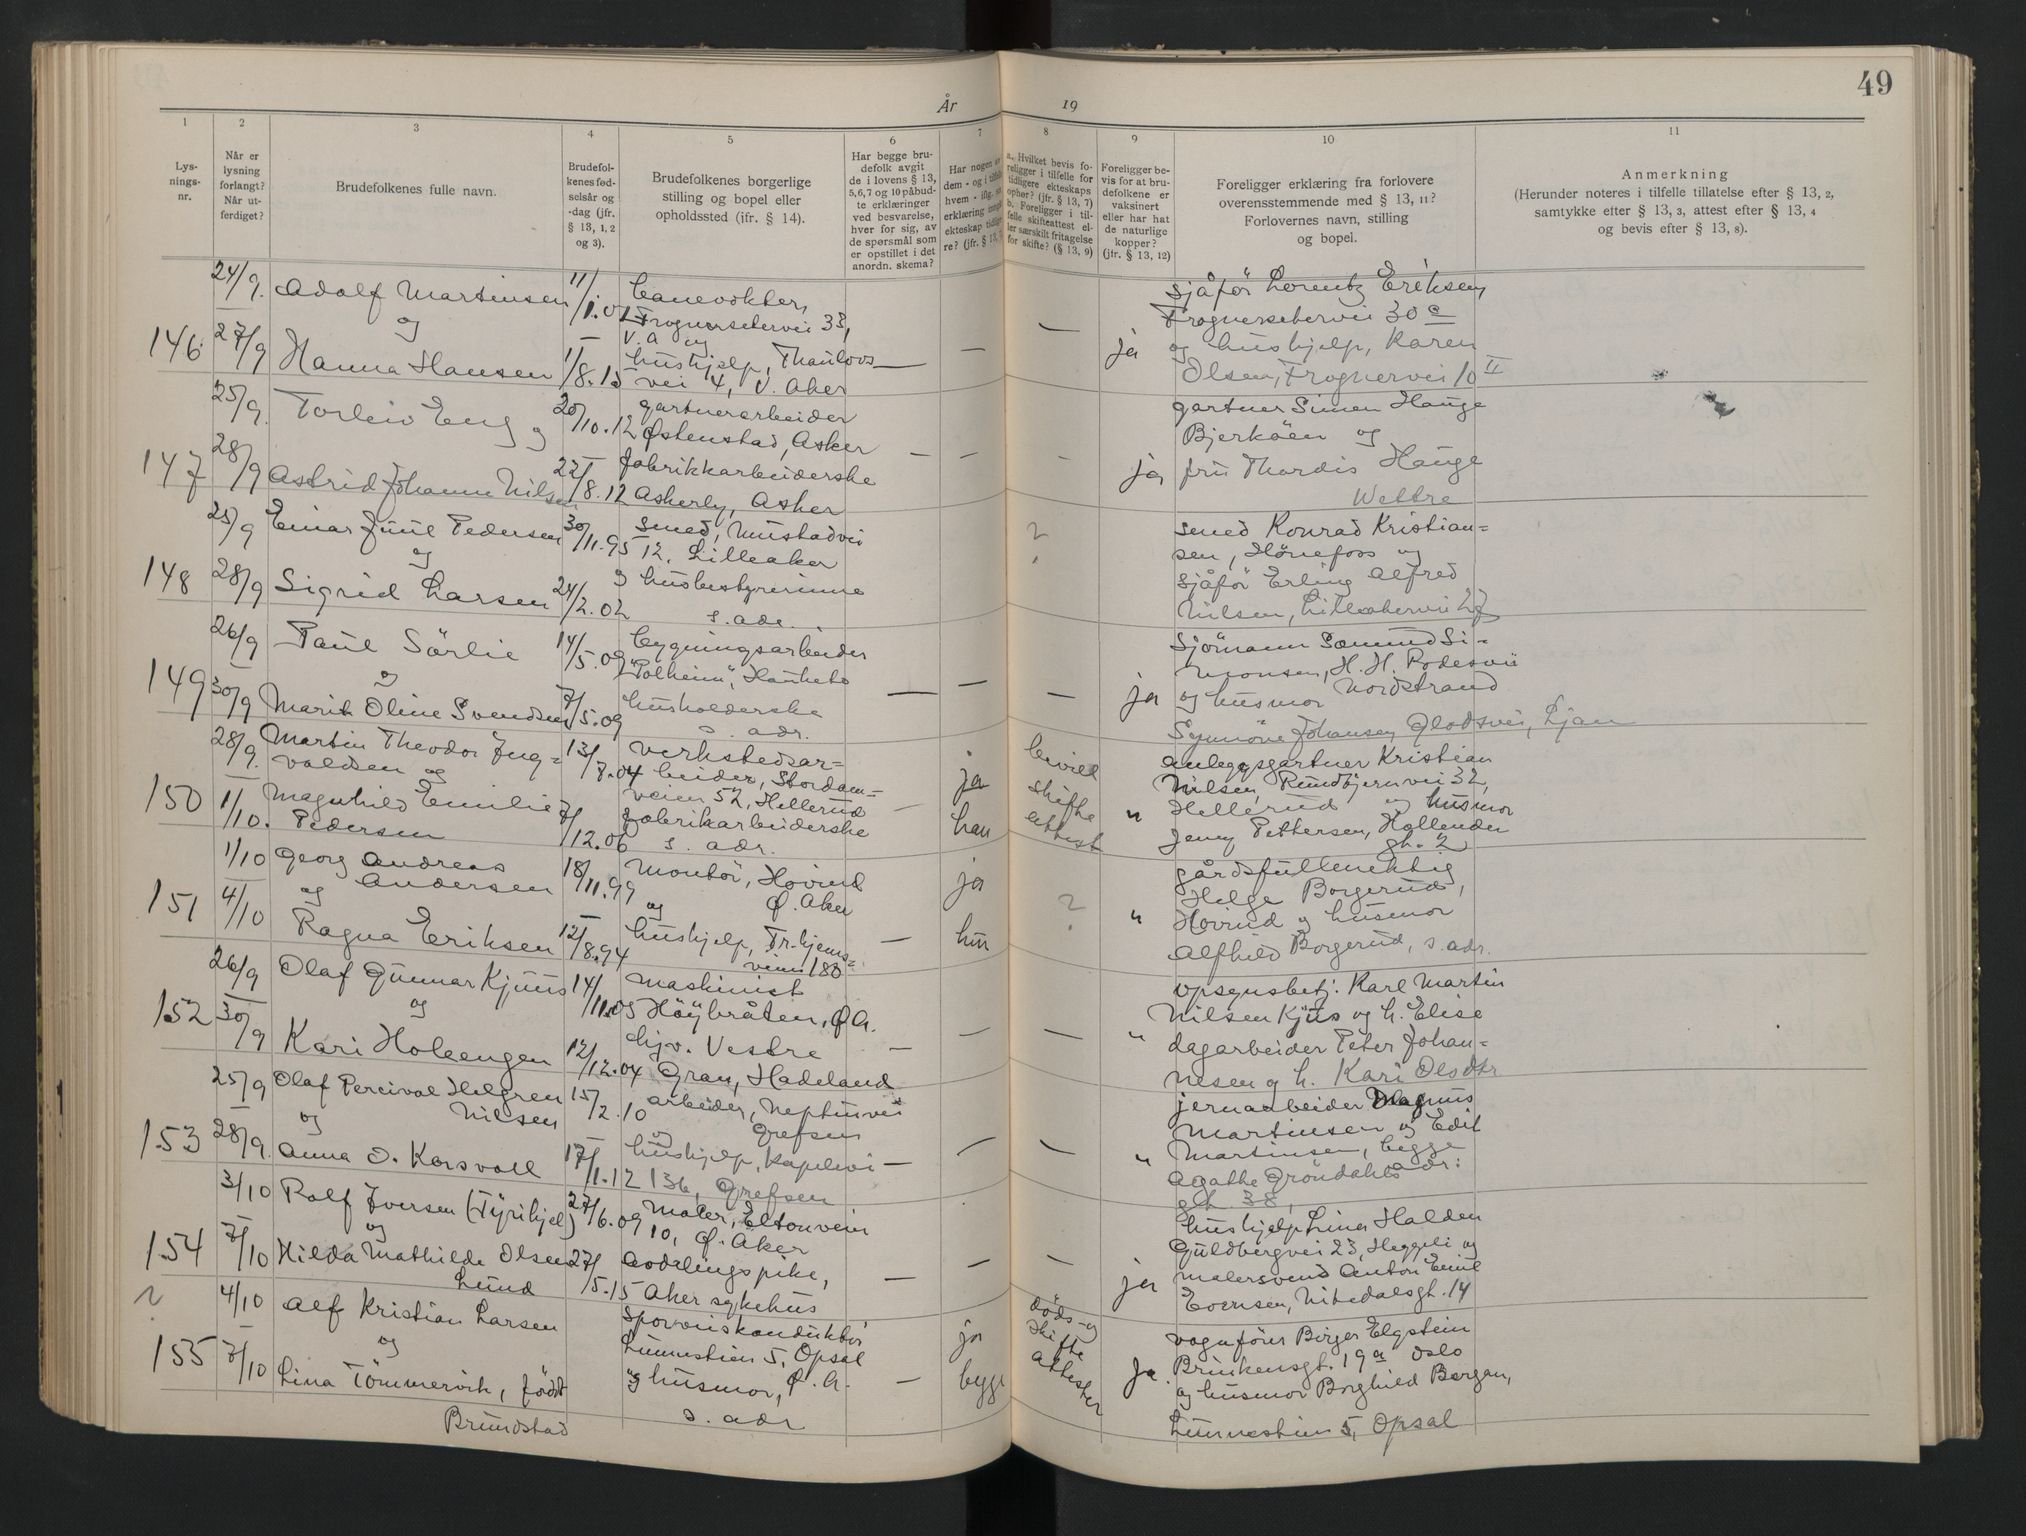 49
År 19
1 2 3 4 5 6 7 8 9 10 11
Lys-
nings-
nr.
Når er
lysning
forlangt?
Når ut-
ferdiget?
Brudefolkenes fulle navn.
Brudefol-
kenes fød-
selsår og
-dag (jfr.
§ 13, 1, 2
og 3).
Brudefolkenes borgerlige
stilling og bopel eller
opholdssted (jfr. § 14).
Har begge bru-
defolk avgit
de i lovens § 13,
5, 6, 7 og 10 påbud-
te erklæringer
ved besvarelse,
hver for sig, av
de spørsmål som
er opstillet i det
anordn. skema?
Har nogen av
dem - og i tilfelle
hvem - iflg.
erklæring inngått
ekteskap tidlige-
re? (jfr. § 13,
a. Hvilket bevis fo-
religger i tilfelle for
tidligere ekteskaps
ophør? (jfr. § 13, 7)
b. Foreligger i til-
felle skifteattest el-
ler særskilt fritagelse
for skifte? (§ 13, 9)
Foreligger be-
vis for at bru-
defolkene er
vaksinert
eller har hat
de naturlige
kopper?
(jfr. § 13, 12)
Foreligger erklæring fra forlovere
overensstemmende med § 13, 11?
Forlovernes navn, stilling
og bopel.
Anmerkning
(Herunder noteres i tilfelle tillatelse efter § 13, 2,
samtykke efter § 13, 3, attest efter § 13, 4
og bevis efter § 13, 8).
146
24/9.
27/9
Adolf Martinsen
og
Hanna Hansen
11/1.01
1/8.13
banevokter,
Frognersetervei 33,
V. A og
hushjelp, Thaulovs
vei 4, V. Aker
— — —
ja
sjåfør Lorentz Eriksen,
Frognersetervei 30 c
og hushjelp, Karen
Olsen, Frognervei 10 II
147
25/9.
28/9
Torleiv Eng og
Astrid Johanne Nilsen
20/10.12
22/8.12
gartnerarbeider
Østenstad, Asker
fabrikkarbeiderske
Askerly, Asker
— — —
ja
gartner Simen Hauge
Bjerkåen og
fru Thordis Hauge
Wettre
148
25/9
28/9
Einar Juul Pedersen
og
Sigrid Larsen
30/11.95
24/2.02
smed, Mustadvei
12, Lilleaker
og husbestyrerinne
s. adr.
?
smed Konrad Kristian=
sen, Hønefoss og
sjåfør Erling Alfred
Nilsen, Lilleakervei 27
149
26/9
30/9
Paul Sörlie
og
Marit Oline Svendsen
14/5.09
7/5.09
bygningsarbeider
"Solheim", Hauketo
husholderske
s. adr.
— — —
ja
sjömann Sæmund Si-
monsen, H. H. Rodesvei
og husmor Nordstrand
Synnöve Johansen Gladsvei, Ljan
150
28/9.
1/10.
Martin Theodor Ing=
valdsen og
Magnhild Emilie
Pedersen
13/7.04
7/12.06
verkstedsar=
beider, Stordam=
veien 52, Hellerud
fabrikarbeiderske
s. adr.
—
ja
han
bevill
skifte
attest
"
anleggsgartner Kristian
Nilsen, Rundbjernvei 32,
Hellerud og husmor
Jenny Pettersen, Hollender
gt. 2
151
1/10
4/10
Georg Andreas
og Andersen
Ragna Eriksen
18/11.99
12/8.94
montör, Hovind
og Ø. Aker
hushjelp, Tr.hjems=
veien 180
—
ja
hun
?
"
gårdsfullmektig
Helge Borgerud,
Hovind og husmor
Alfhild Borgerud, s. adr.
152
26/9
30/9
Olaf Gunnar Kjuus
og
Kari Holeengen
14/11.05
12/12.04
maskinist
Höybråten, Ø A.
hjv. Vestre
Gran, Hadeland
— — —
"
opsynsbetj. Karl Martin
Nilsen Kjus og h. Elise
dagarbeider Peter Johan=
nesen og h. Kari Olsdtr
153
25/9
28/9.
Olaf Percival Helgren
og Nilsen
Anna O. Korsvoll
15/2.10
17/1.12
arbeider, Neptunvei
og Grefsen
hushjelp, Kapelvei
136, Grefsen
— — —
"
jernarbeider Magnus
Martinsen og Edit
Martinsen, begge
Agathe Gröndahls adr:
gt. 38,
154
3/10
7/10
Rolf Iversen (Tyrihjel)
og
Hilda Mathilde Olsen
Lund
27/6.09
27/5.15
Maler, Eltonveien
10, Ø. Aker
avdelingspike,
Aker sykehus
— — —
ja
hushjelp Lina Halden
Guldbergvei 23, Heggeli og
malersvend Anton Emil
Evensen, Nitedalsgt. 14
?
155
4/10
7/10
Alf Kristian Larsen
og
Lina Tömmervik, født
Brundstad
sporveiskonduktör
Lunnestien 5, Opsal
og husmor, Ø. A.
s. adr
—
ja
begge
døds- og
skifte
attester
Ja.
vognfører Birger Elgstein
Brinkensgt. 19 a Oslo
og husmor Borghild Bergan,
Lunnestien 5, Opsal